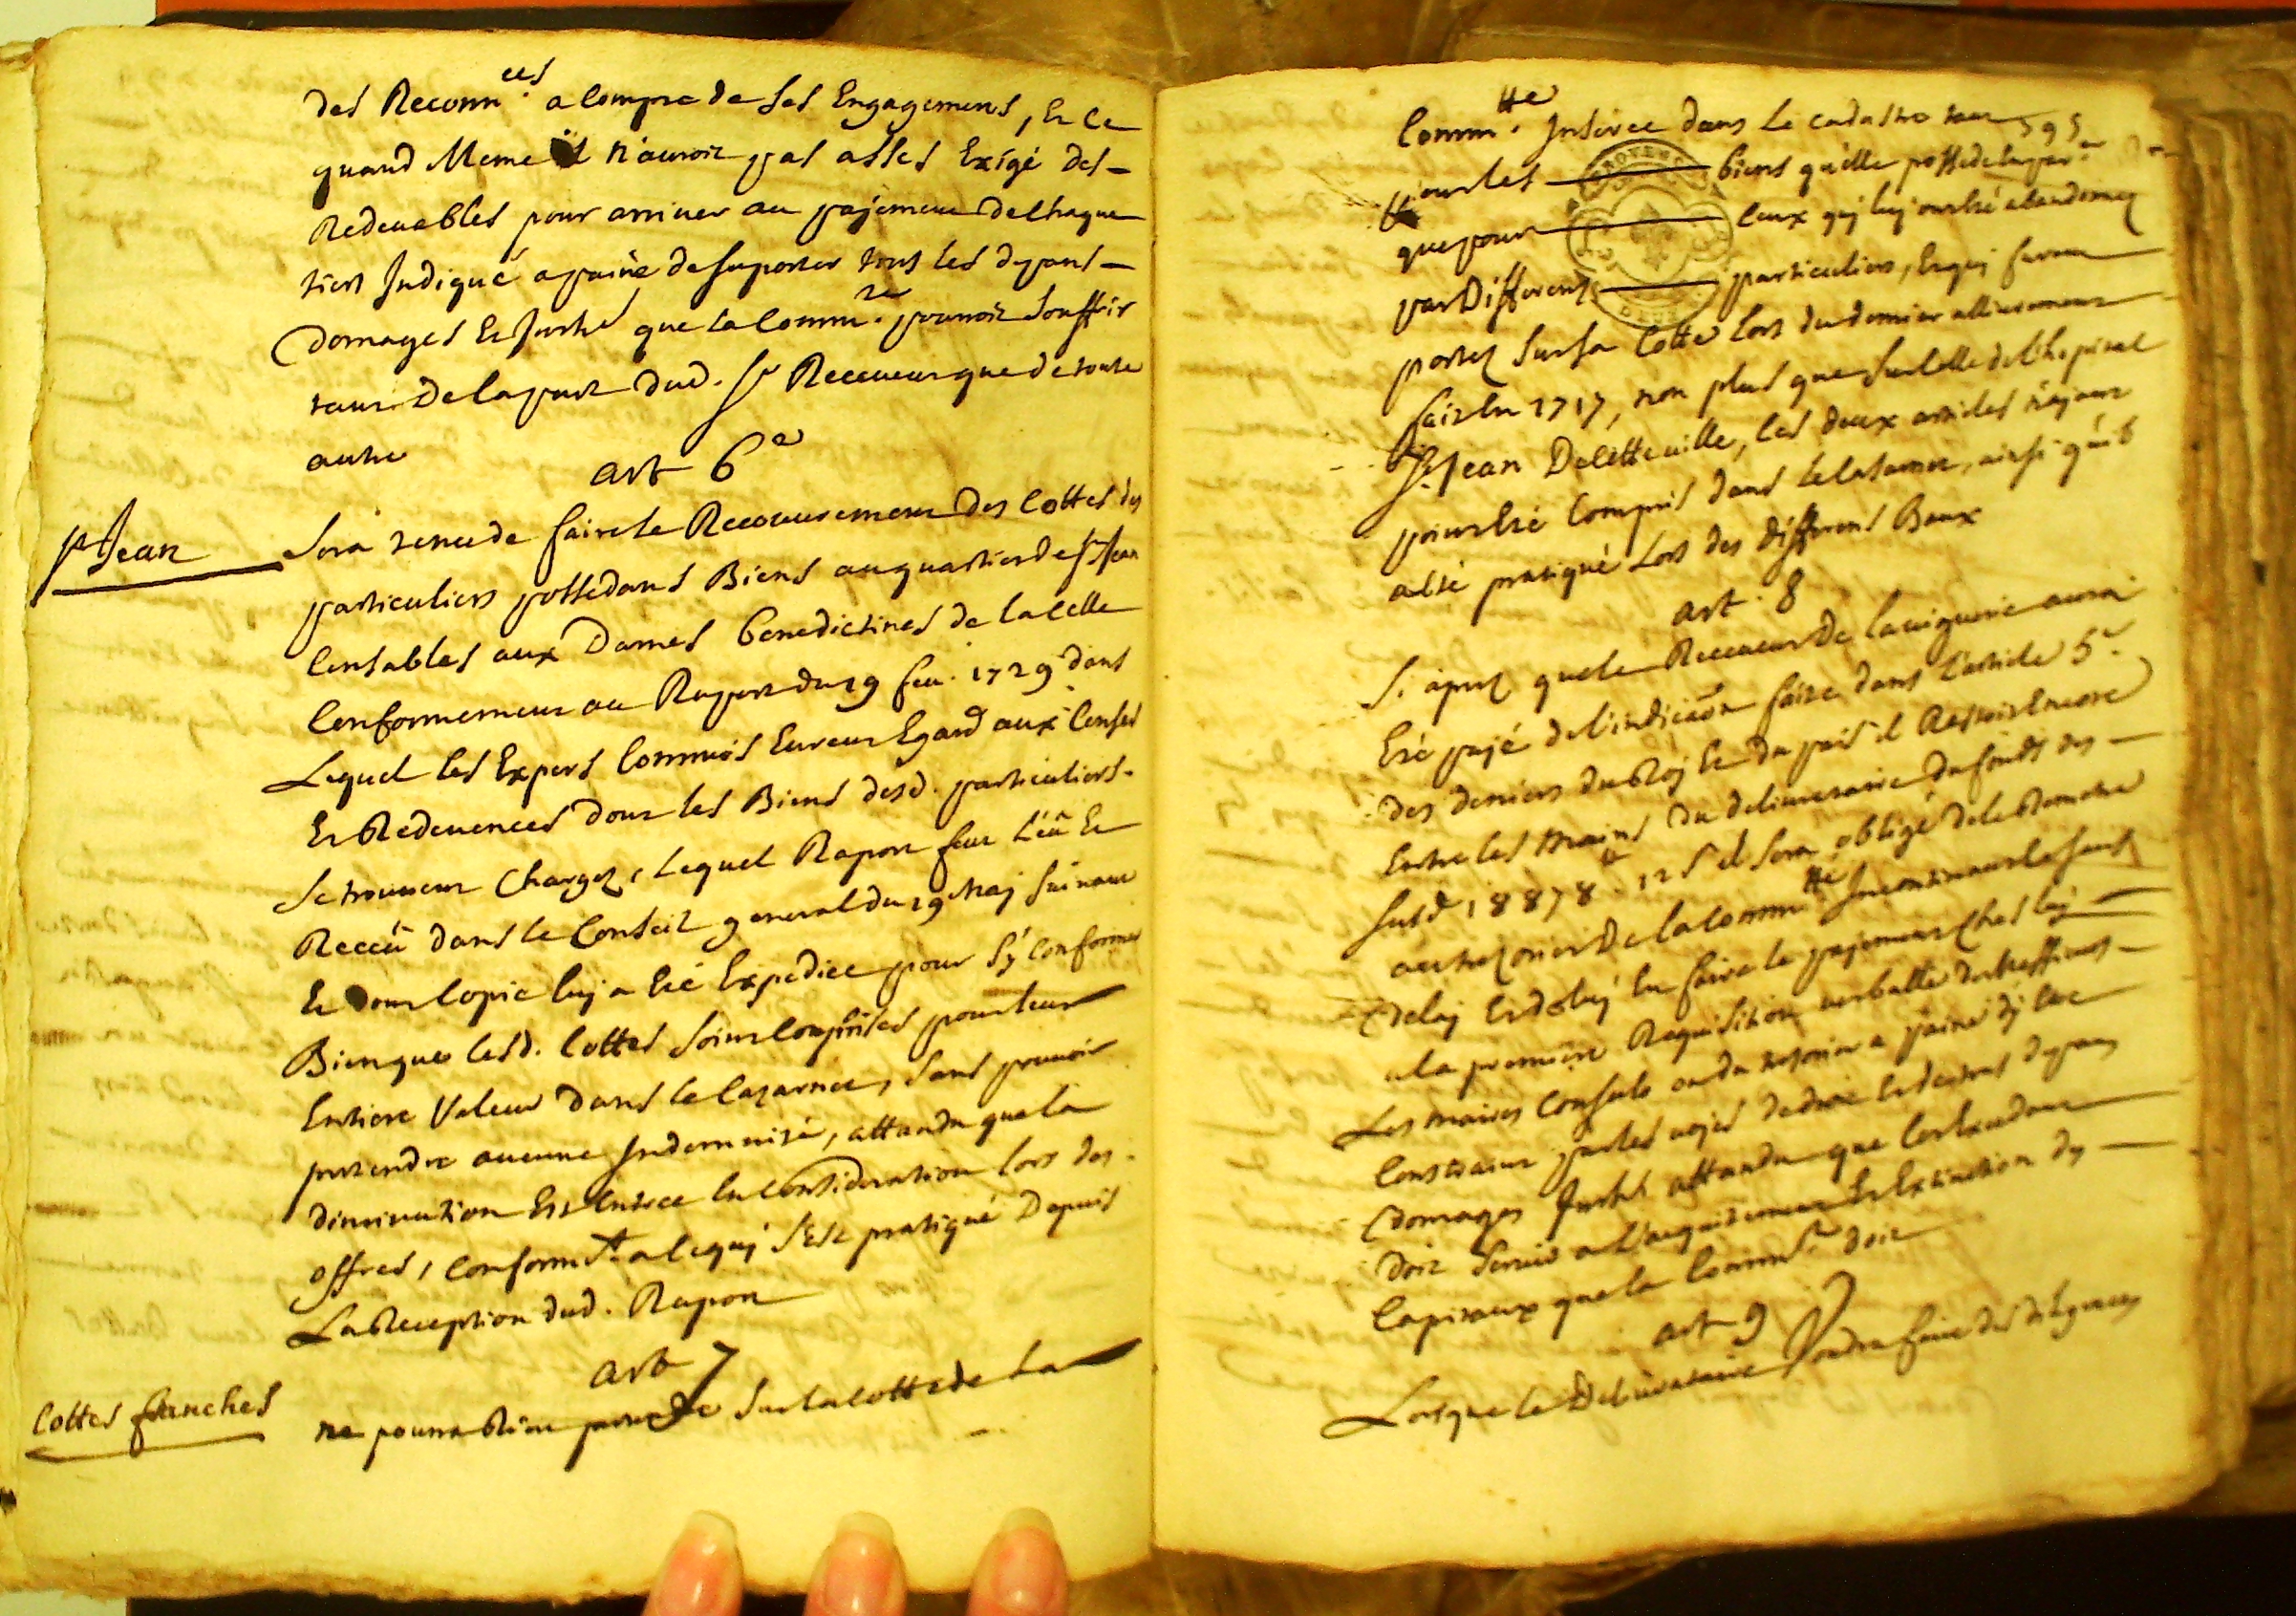 des Reconn.ces a compte de ses Engagemens, Et ce
quand meme il n'auroit pas asses Exigé des
Redeuables pour arriuer au payement de chaque
tiers Indiqué a paine de suporter tous les depans
domages Et Jnthes que la Comm.te pourroit souffrir
tant de la part dud. Sr Receueur que de toute
autre
art 6e
St Jean
Sera tenu de faire le Recouurement des Cottes des
particuliers possedans Biens au quartier de St Jean
Censables aux Dames benedictines de la Celle
Conformement au Raport du 19 feu. 1729 dans
Lequel les Expers Commis Eurent Egard aux Censes
Et Redeuences dont les Biens desd. particuliers
se trouuent Chargez, Lequel Raport feut Leû Et
Receû dans le Conseil general du 29 May suiuant
Et dont Copie luy a Eté Expediée pour s'y conformer
Bien que lesd. Cottes soint comprises pour leur
Entiere Valeur dans le Cazarnet, sans pouuoir
pretendre aucune Jndemnité, attandu que la
diminution Est Entrée En Consideration lors des
offres, conform.t a ce quy s'Est pratiqué Depuis
La Reception dud. Raport
art 7
Cottes franches
ne pourra Rien prendre sur la cotte de La
Comm.tte Jnserée dans Le cadastre tant
595
pour les biens qu'elle possede
que pour ceux quy luy ont Eté abandonnez
par Differens particuliers, Et quy furent
portez sur sa Cotte Lors du dernier alliurement
fait En 1717, non plus que sur celle de l'hopital
St Jean De cette ville, Les deux articles n'ayant
point Eté Compris dans le Casarnet, ainsi qu'il
a Eté pratiqué Lors des differens Baux
art. 8
Si aprez que le Receueur De la viguerie aura
Eté payé de l'indication faite dans l'article 5e
des deniers du Roy Et du païs il Restoit Encore
Entre les mains du deliurataire du fonds des
susd 18878 ₶ 12 s il sera obligé de le Remettre
au trezorier De la Comm.tte Jncontinant le susd
delay Et de luy En faire le payement Chez luy
a la premiere Requisition verballe
Les maires Consuls ou du tresorier a paine d'y Etre
Constraint par les voyes de droit Et de tous depens
domages Jnthes attandu que
doit seruir a l'aquitement Et Extinction des
Capitaux que la Comm.te doit
art 9
Lorsque le Deliurataire Voudra faire des diligences